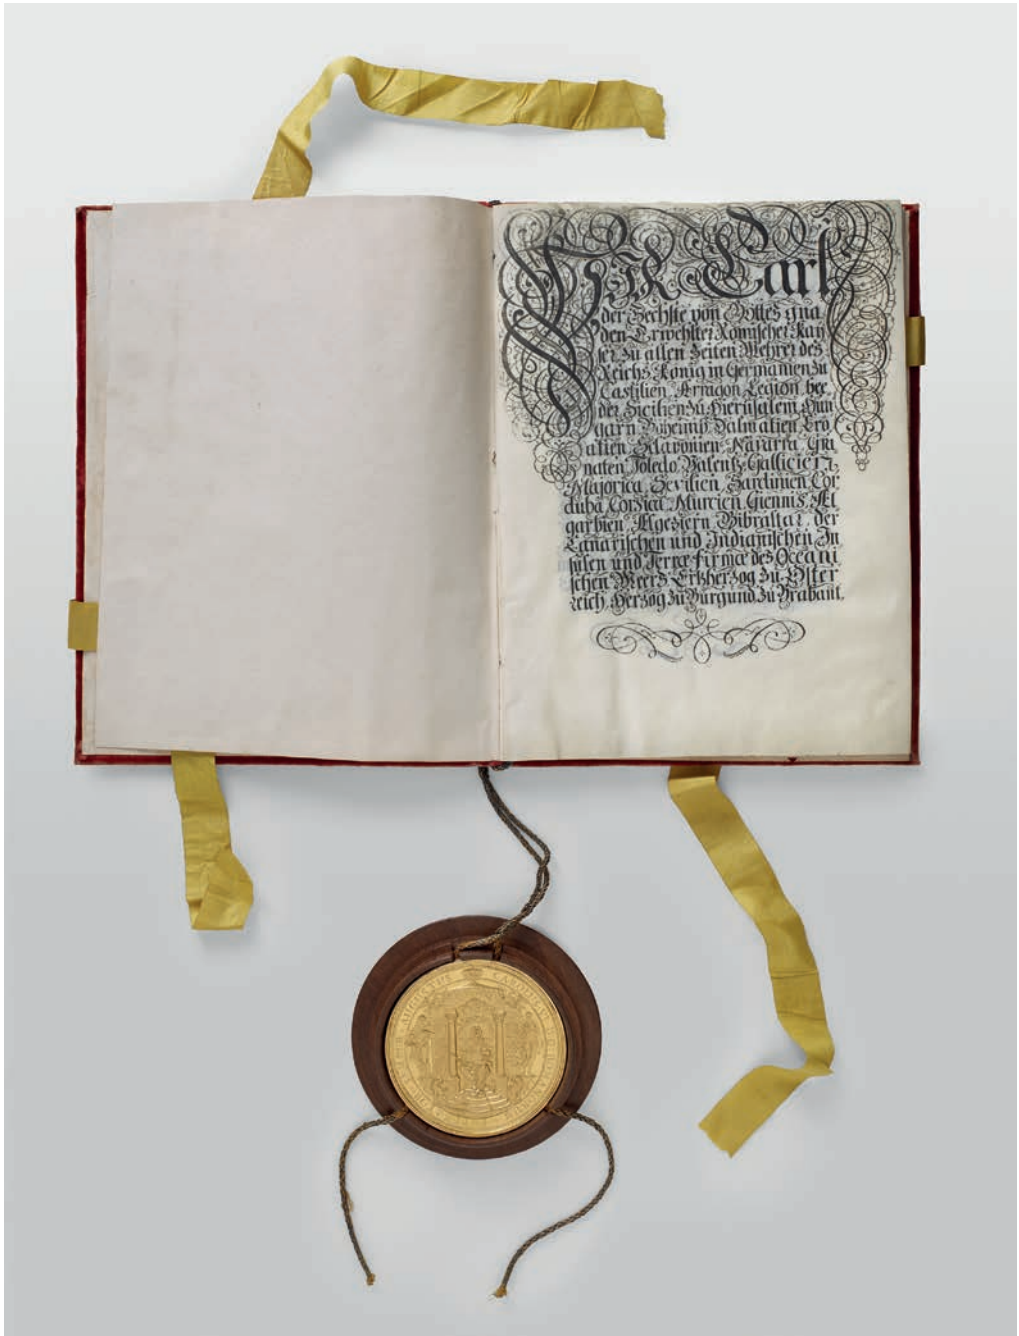 Wir Carl
der Sechste von Gottes gna
den Erwehlter Römischer Kay
ser zu allen Zeiten Mehrer des
Reichs, König in Germanien zu
Castilien, Arragon, Legion, bee
der Sicilien zu Hierusalem, Hun
garn, Böheimb, Dalmatien, Cro
atien, Sclavonien, Navarra, Gra
naten, Toledo, Valentz, Gallicien,
Majorica, Sevilien, Sardinien, Cor
duba, Corsica, Murcien, Giennis, Al
garbien, Algeziern, Gibraltar, der
Canarischen und Indianischen In
sulen und Terræ firmæ des Oceani
schen Meers, Ertzherzog zu Öster
reich, Herzog zu Burgund, zu Brabant,
AUGUSTUS